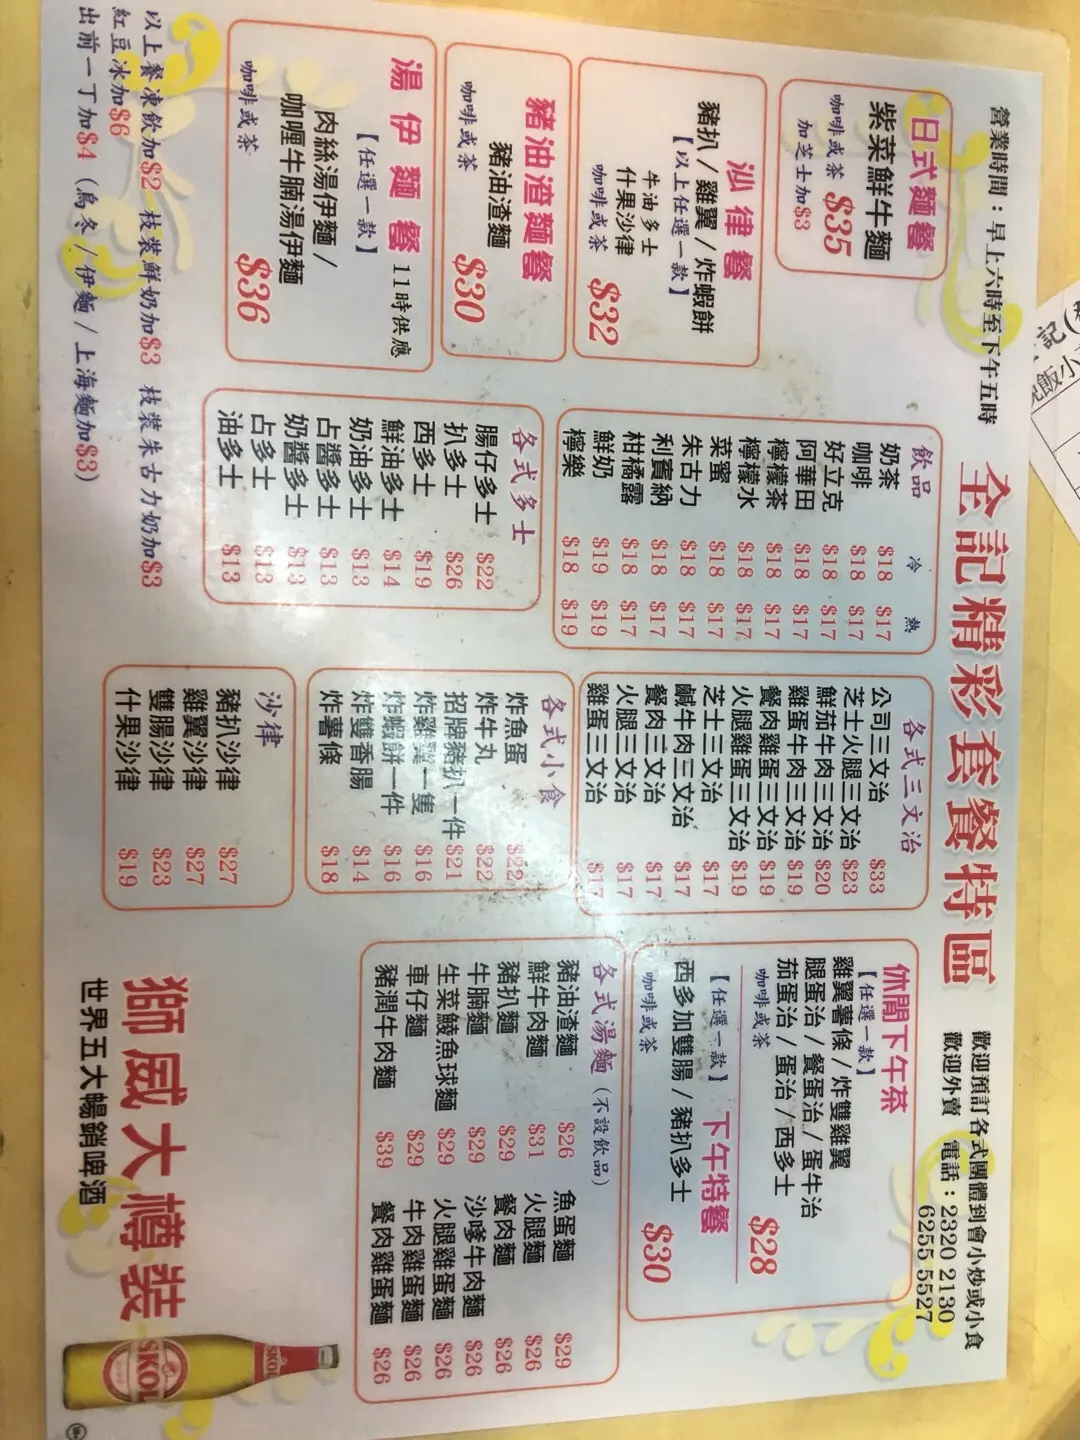 營業時間：早上六時至下午五時
全記精彩套餐特區
歡迎預訂各式團體到會小炒或小食
歡迎外賣 電話：2320 2130
6255 5527
日式麵餐
紫菜鮮牛麵
咖啡或茶 $35
加芝士加$3
沙律餐
豬扒/雞翼/炸蝦餅
【以上任選一款】
牛油多士
什果沙律
咖啡或茶 $32
豬油渣麵餐
豬油渣麵
咖啡或茶 $30
湯伊麵餐 11時供應
【任選一款】
肉絲湯伊麵/
咖喱牛腩湯伊麵
咖啡或茶 $36
飲品 冷 熱
奶茶 $18 $17
咖啡 $18 $17
好立克 $18 $17
阿華田 $18 $17
檸檬茶 $18 $17
檸檬水 $18 $17
菜蜜 $18 $17
朱古力 $18 $17
利賓納 $18 $17
柑橘露 $18 $17
鮮奶 $19 $19
檸樂 $18 $19
各式多士
腸仔多士 $22
扒多士 $26
西多士 $19
鮮油多士 $14
奶油多士 $13
占醬多士 $13
奶醬多士 $13
占多士 $13
油多士 $13
各式三文治
公司三文治 $33
芝士火腿三文治 $23
鮮茄牛肉三文治 $20
雞蛋牛肉三文治 $19
餐肉雞蛋三文治 $19
火腿雞蛋三文治 $19
芝士三文治 $17
鹹牛肉三文治 $17
餐肉三文治 $17
火腿三文治 $17
雞蛋三文治 $17
各式小食
炸魚蛋 $22
炸牛丸 $22
招牌豬扒一件 $21
炸雞翼一隻 $16
炸蝦餅一件 $16
炸雙香腸 $14
炸薯條 $18
沙律
豬扒沙律 $27
雞翼沙律 $27
雙腸沙律 $23
什果沙律 $19
休閒下午茶
【任選一款】
雞翼薯條/炸雙雞翼
腿蛋治/餐蛋治/蛋牛治
茄蛋治/蛋治/西多士
咖啡或茶 $28
【任選一款】 下午特餐
西多加雙腸/豬扒多士
咖啡或茶 $30
各式湯麵（不設飲品）
豬油渣麵 $26 魚蛋麵 $29
鮮牛肉麵 $31 火腿麵 $26
豬扒麵 $29 餐肉麵 $26
牛腩麵 $29 沙嗲牛肉麵 $26
生菜鯪魚球麵 $29 火腿雞蛋麵 $26
車仔麵 $29 牛肉雞蛋麵 $26
豬潤牛肉麵 $39 餐肉雞蛋麵 $26
以上餐凍飲加$2 枝裝鮮奶加$3 枝裝朱古力奶加$3
紅豆冰加$6
出前一丁加$4（烏冬/伊麵/上海麵加$3）
獅威大樽裝
世界五大暢銷啤酒
SKOL
SKOL
記
飯小